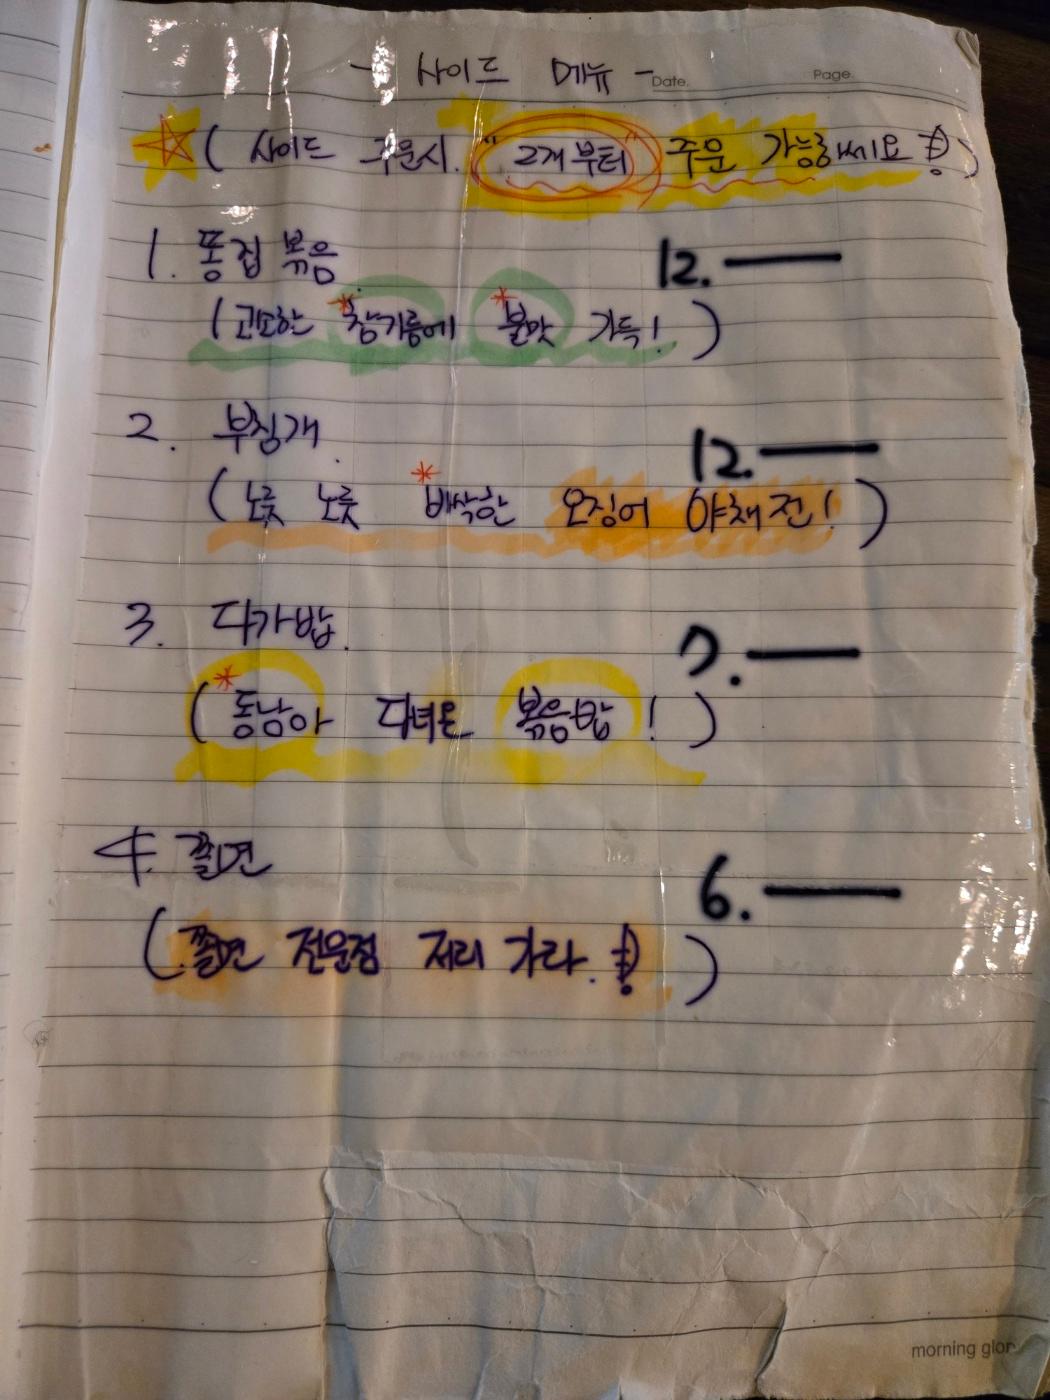 - 사이드 메뉴 -
Date. Page.
☆ ( 사이드 주문시. "2개부터" 주문 가능하세요 !)
1. 똥집볶음 12.—
(고소한 *참기름에 *불맛 가득! )
2. 부침개. 12.—
(노릇 노릇 *바삭한 오징어 야채전! )
3. 다가밥. 7.—
( *동남아 다녀온 볶음밥 ! )
4. 쫄면 6.—
(쫄면 전문점 저리 가라. ! )
morning glor